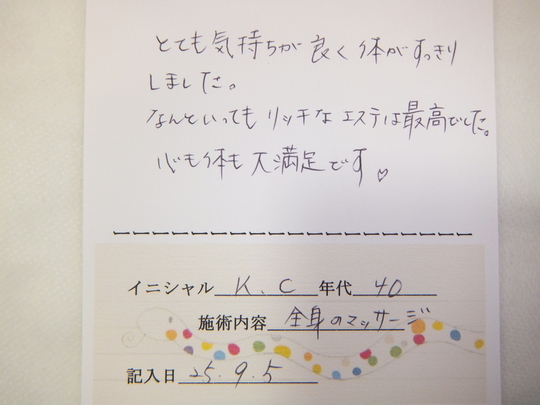 とても気持ちが良く体がすっきり
しました。
なんといっても リッチな エステは最高でした。
心も体も大満足です♡
イニシャル K.C 年代 40
施術内容 全身のマッサージ
記入日 25.9.5